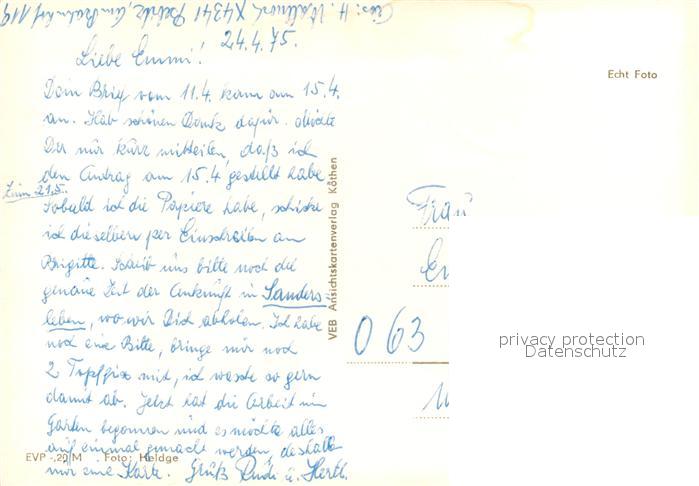 Abs: H. Wallwork, X4341 Belitz, Am Bahnhof 119
24.4.75.
Liebe Emmi!
Dein Brief vom 11.4. kam am 15.4.
an. Hab schönen Dank dafür. Möchte
Dir nur kurz mitteilen, daß ich
den Antrag am 15.4 gestellt habe
zum 21.5.
Sobald ich die Papiere habe, schicke
ich dieselben per Einschreiben an
Brigitte. Schreib uns bitte noch die
genaue Zeit der Ankunft in Sanders-
leben, wo wir Dich abholen. Ich habe
noch eine Bitte, bringe mir noch
2 Topffix mit, ich wasche so gern
damit ab. Jetzt hat die Arbeit im
Garten begonnen und es möchte alles
auf einmal gemacht werden, deshalb
nur eine Karte. Gruß Rudi u. Herta.
EVP -,20 M Foto: Heldge
VEB Ansichtskartenverlag Köthen
Echt Foto
Frau
063
privacy protection
Datenschutz